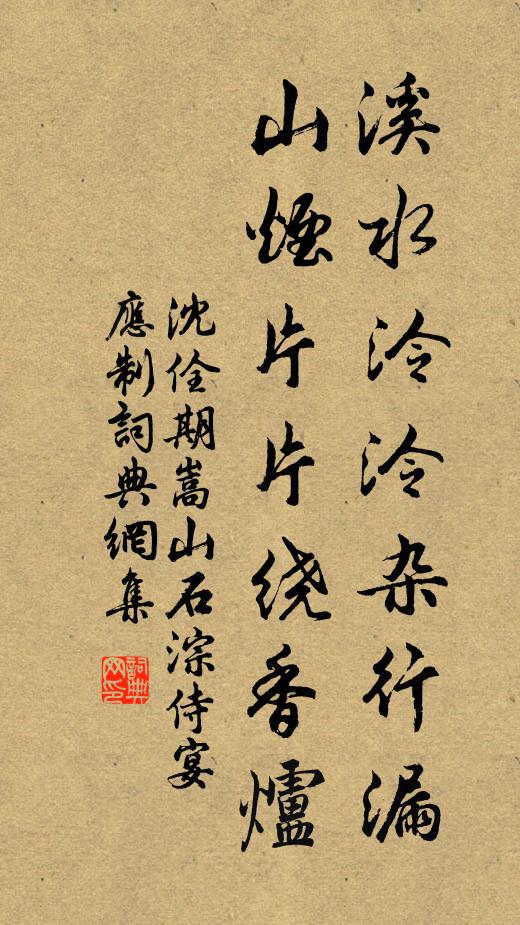 溪水泠泠杂行漏
山煙片片绕香爐
沈佺期嵩山石淙侍宴
應制詞典網集
詞典网印